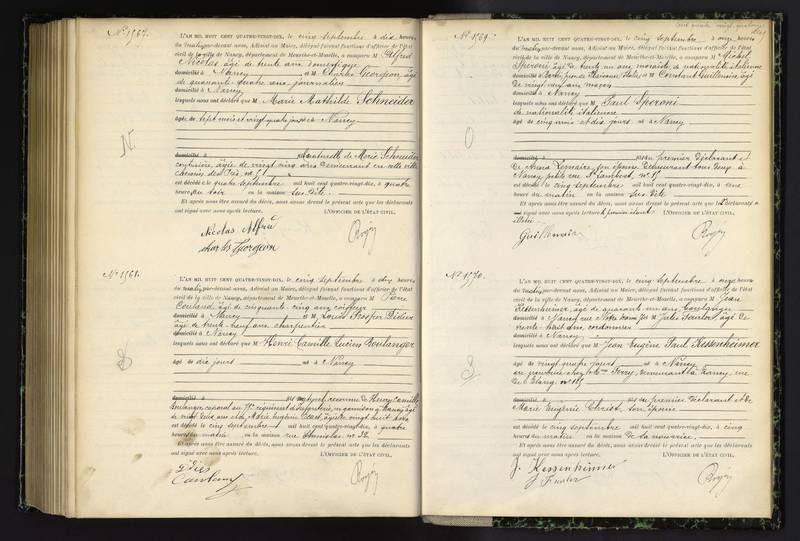 N° 1567.
L'AN MIL HUIT CENT QUATRE-VINGT-DIX, le cinq septembre à dix heures
du matin, par-devant nous, Adjoint au Maire, délégué faisant fonctions d'officier de l'état
civil de la ville de Nancy, département de Meurthe-et-Moselle, a comparu M Alfred
Nicolas, âgé de trente ans, domestique
domicilié à Nancy et M Charles Georgeon, âgé
de quarante quatre ans, journalier
domicilié à Nancy
lesquels nous ont déclaré que M Marie Mathilde Schneider
âgée de sept mois et vingt quatre jours née à Nancy
domicilié à naturelle de Marie Schneider
couturière, âgée de vingt cinq ans demeurant en cette ville
est décédée le quatre septembre mil huit cent quatre-vingt-dix, à quatre
heures du soir en la maison sus-dite.
Et après nous être assuré du décès, nous avons dressé le présent acte que les déclarants
ont signé avec nous après lecture. L'OFFICIER DE L'ÉTAT CIVIL,
Nicolas Alfred
charles Georgeon
N
N° 1568.
L'AN MIL HUIT CENT QUATRE-VINGT-DIX, le cinq septembre à dix heures
du matin, par-devant nous, Adjoint au Maire, délégué faisant fonctions d'officier de l'état
civil de la ville de Nancy, département de Meurthe-et-Moselle, a comparu M Pierre
âgé de cinquante cinq ans, coiffeur
domicilié à Nancy et M Louis Prosper Didier
âgé de trente neuf ans, charpentier
domicilié à Nancy
lesquels nous ont déclaré que M Henri Camille Lucien Boulanger
âgé de dix jours né à Nancy
domicilié à fils reconnu de Henry Camille
Boulanger caporal au régiment d'infanterie, en garnison à Nancy âgé
de vingt deux ans et de Marie Eugénie âgée de vingt huit ans
est décédé le cinq septembre mil huit cent quatre-vingt-dix, à quatre
heures du matin en la maison rue Stanislas, n° 32
Et après nous être assuré du décès, nous avons dressé le présent acte que les déclarants
ont signé avec nous après lecture. L'OFFICIER DE L'ÉTAT CIVIL,
N° 1569.
L'AN MIL HUIT CENT QUATRE-VINGT-DIX, le cinq septembre à onze heures
du matin, par-devant nous, Adjoint au Maire, délégué faisant fonctions d'officier de l'état
civil de la ville de Nancy, département de Meurthe-et-Moselle, a comparu M Michel
Speroni, âgé de trente un ans, de nationalité italienne
domicilié à et M Constant Guillemin âgé
de vingt neuf ans maçon
domicilié à Nancy
lesquels nous ont déclaré que M Paul Speroni
de nationalité italienne
âgé de cinq mois et dix jours né à Nancy
domicilié à fils du premier déclarant et
de Anna Lemaire, son épouse, demeurant tous deux à
Nancy petite rue St Lambert, n° 15
est décédé le cinq septembre mil huit cent quatre-vingt-dix, à une
heure du matin en la maison sus-dite
Et après nous être assuré du décès, nous avons dressé le présent acte que le déclarant
signé avec nous après lecture, le premier étant
illettré L'OFFICIER DE L'ÉTAT CIVIL,
N° 1570.
L'AN MIL HUIT CENT QUATRE-VINGT-DIX, le cinq septembre à onze heures
du matin, par-devant nous, Adjoint au Maire, délégué faisant fonctions d'officier de l'état
civil de la ville de Nancy, département de Meurthe-et-Moselle, a comparu M Jean
Kessenheimer âgé de quarante un ans, boulanger
domicilié à Nancy rue Notre Dame et M Jules âgé de
trente huit ans, cordonnier
domicilié à Nancy
lesquels nous ont déclaré que M Jean Eugène Paul Kessenheimer
âgé de vingt quatre jours né à Nancy
en nourrice chez Mme Ferry, demeurant à Nancy, rue
de l'Etang n° 115
domicilié à fils du premier déclarant et de
Marie Eugénie son épouse
est décédé le cinq septembre mil huit cent quatre-vingt-dix, à cinq
heures du matin en la maison de la nourrice.
Et après nous être assuré du décès, nous avons dressé le présent acte que les déclarants
ont signé avec nous après lecture. L'OFFICIER DE L'ÉTAT CIVIL,
J. Kessenheimer